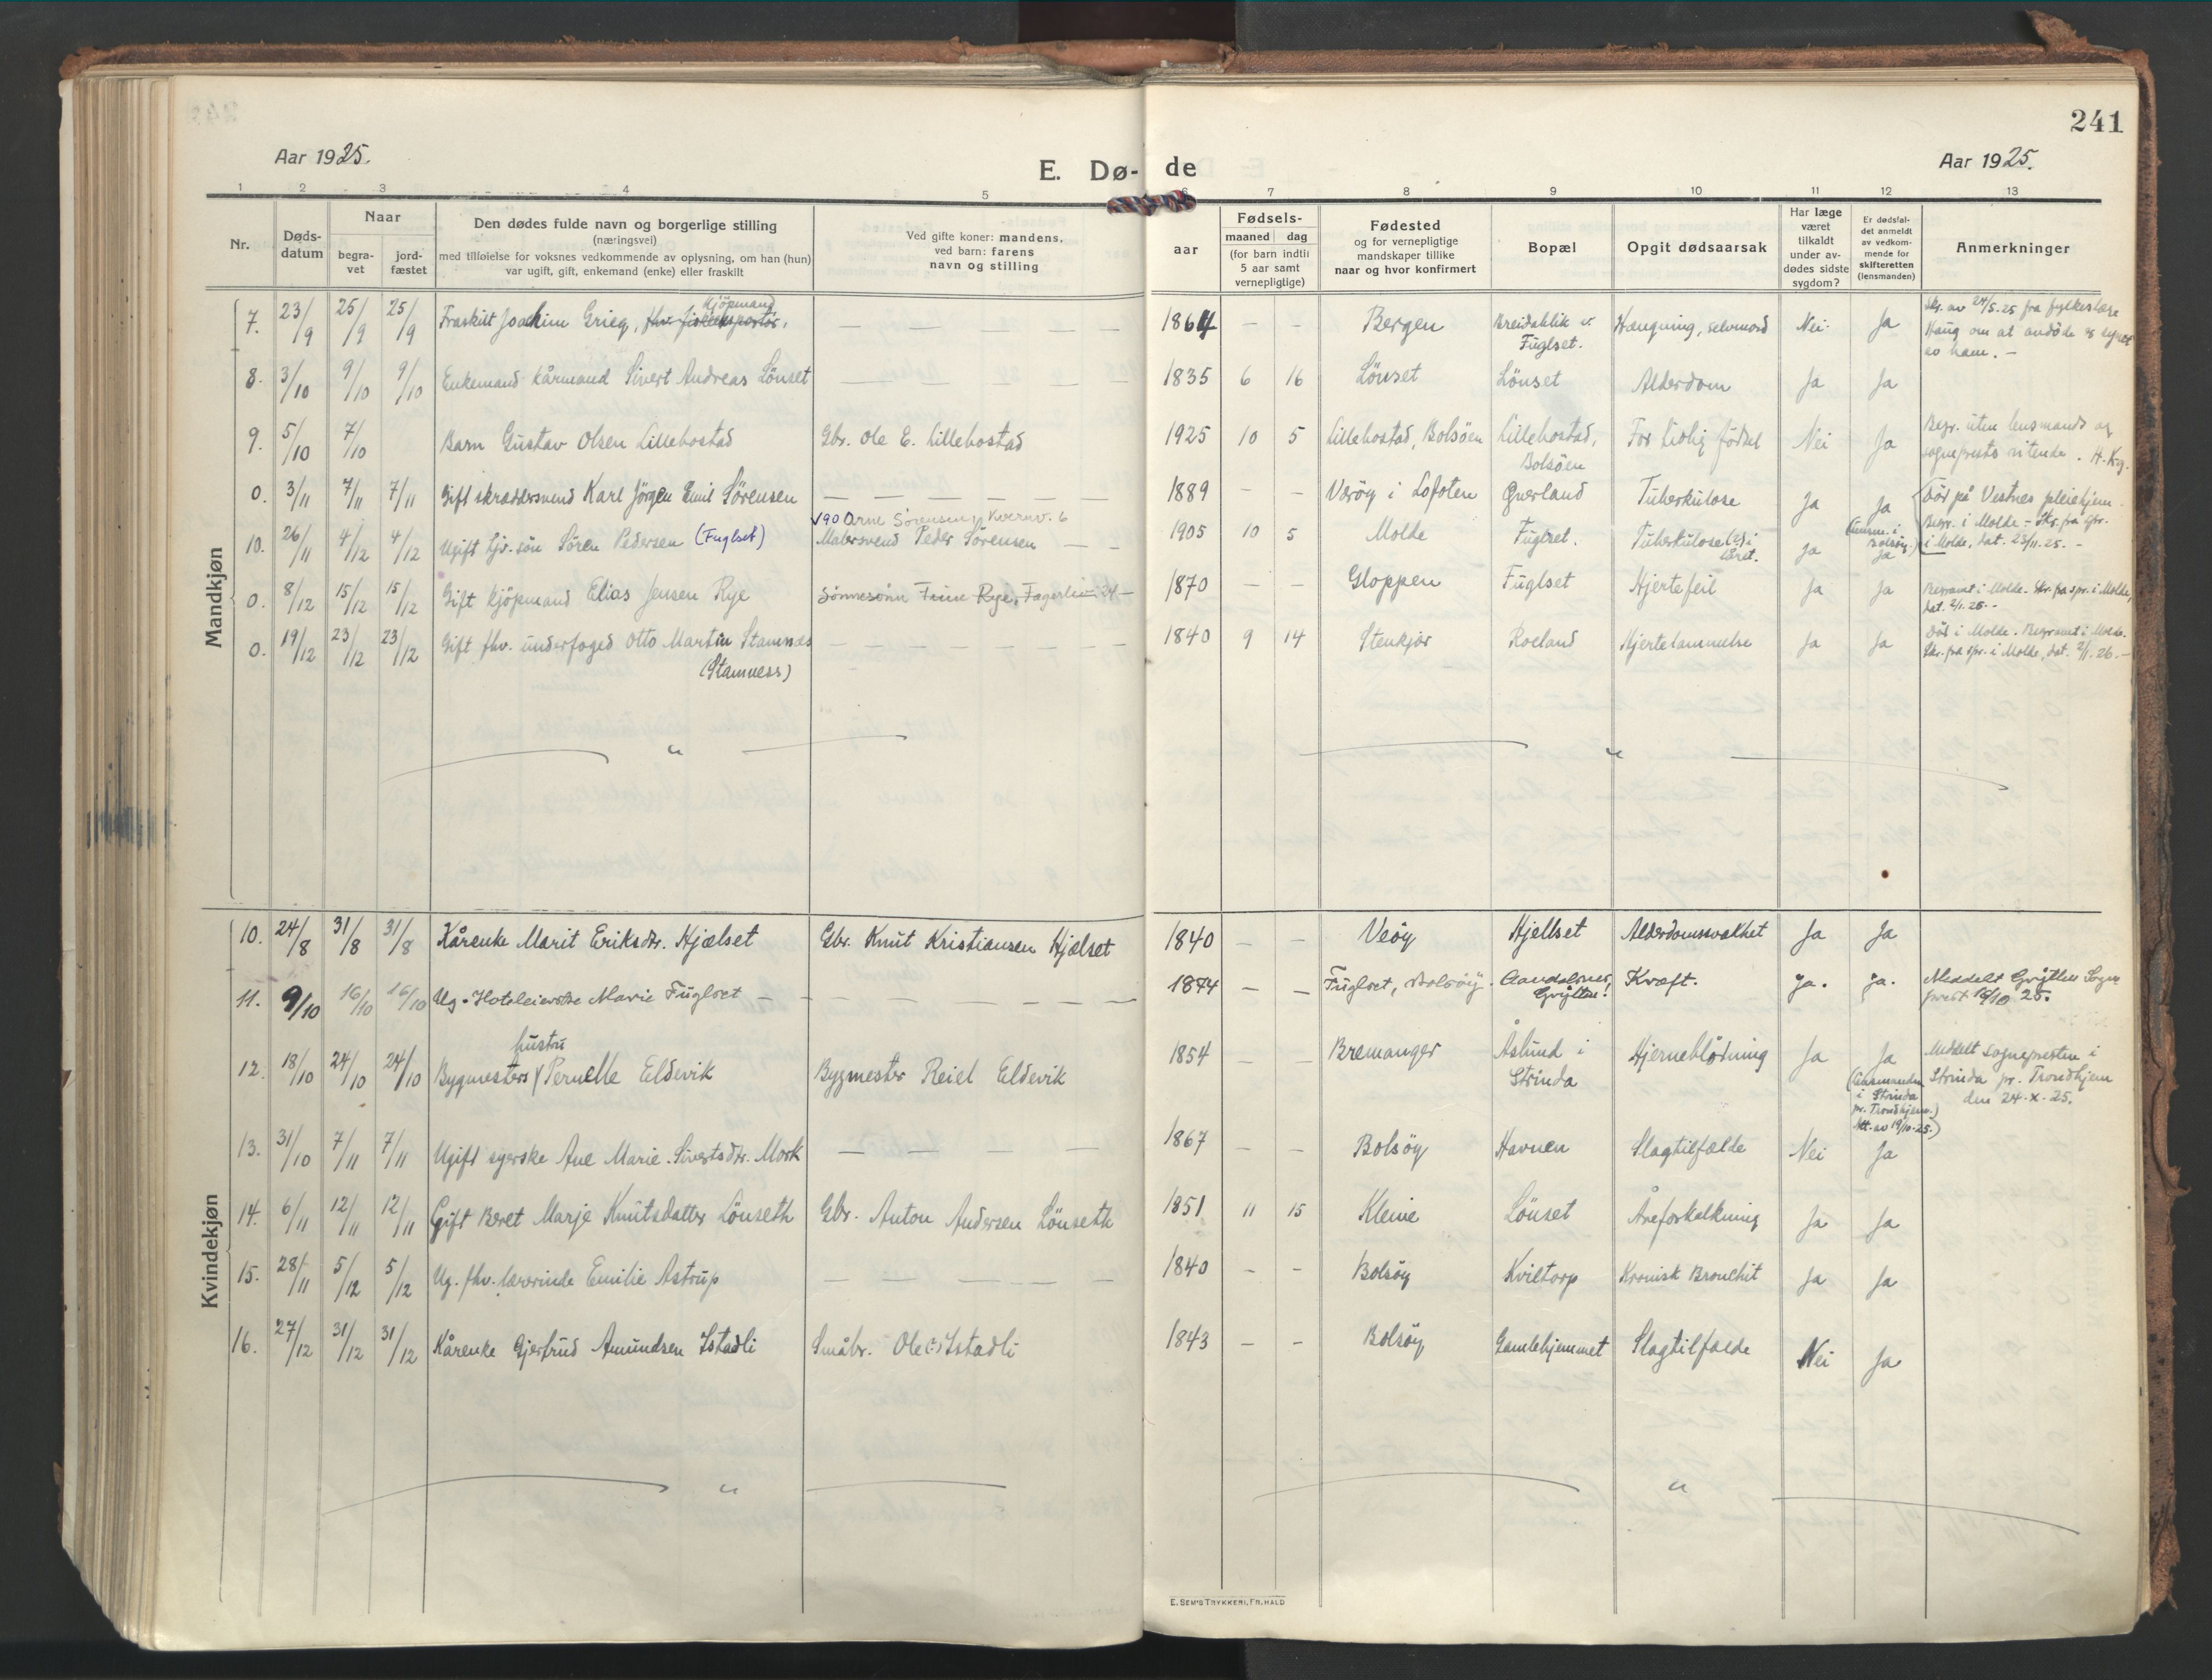 241
Aar 1925.
E. Dø- de
Aar 1925.
1 2 3 4 5 6 7 8 9 10 11 12 13
Nr.
Døds-
datum
Naar
begra-
vet
jord-
fæstet
Den dødes fulde navn og borgerlige stilling
(næringsvei)
med tilføielse for voksnes vedkommende av oplysning, om han (hun)
var ugift, gift, enkemand (enke) eller fraskilt
Ved gifte koner: mandens,
ved barn: farens
navn og stilling
aar
Fødsels-
maaned dag
(for barn indtil
5 aar samt
vernepligtige)
Fødested
og for vernepligtige
mandskaper tillike
naar og hvor konfirmert
Bopæl
Opgit dødsaarsak
Har læge
været
tilkaldt
under av-
dødes sidste
sygdom?
Er dødsfal-
det anmeldt
av vedkom-
mende for
skifteretten
(lensmanden)
Anmerkninger
Mandkjøn
Kjöpmand
7. 23/9 25/9 25/9 Fraskilt Joachim Grieg, fhv. fiskeeksportör. — — — — — 1864 - - Bergen Breidablik v. Hængning, selvmord Nei. Ja Skr. av 24/5.25 fra fylkeslæge
Fuglset. Haug om at avdöde er synet
av ham. —
8. 3/10 9/10 9/10 Enkemand kårmand Sivert Andreas Lönset — — — — 1835 6 16 Lönset Lönset Alderdom Ja Ja
9. 5/10 7/10 Barn Gustav Olsen Lillebostad Gbr. Ole E. Lillebostad 1925 10 5 Lillebostad, Bolsöen Lillebostad, For tidlig födsel Nei Ja Begr. uten lensmands og
Bolsöen sogneprests vitende. H.K-g.
0. 3/11 7/11 7/11 Gift skræddersvend Karl Jörgen Emil Sörensen — — — — — — 1889 - - Væröy i Lofoten Gverland Tuberkulose Ja Ja Död på Vestnes pleiehjem.
Begr. i Molde - Skr. fra spr.
i Molde, dat. 23/11.25. -
√90 Arne Sörensen, Kvernv. 6
10. 26/11 4/12 4/12 Ugift tjr. sön Sören Pedersen (Fuglset) Malersvend Peder Sörensen — — 1905 10 5 Molde Fuglset. Tuberkulose (2) i Ja (Anm. i
låret. Bolsöy.)
Ja
0. 8/12 15/12 15/12 Gift kjöpmand Elias Jensen Rye Sönnesönn Rye, Fagerlia 24 — 1870 - - Gloppen Fuglset Hjertefeil Ja Ja Begravet i Molde. Skr. fra spr. i Molde,
dat. 2/1.25. -
0. 19/12 23/12 23/12 Gift fhv. underfoged Otto Martin Stamnæs — — — — — — — 1840 9 14 Stenkjær Roeland Hjertelammelse Ja Ja Död i Molde. Begravet i Molde.
(Stamness) Skr. fra spr. i Molde, dat. 2/1.26. —
— " — — " —
Kvindekjøn
10. 24/8 31/8 31/8 Kårenke Marit Eriksdtr. Hjælset Gbr. Knut Kristiansen Hjelset 1840 - - Veöy Hjellset Alderdomssvakhet Ja Ja
11. 9/10 16/10 16/10 Ug. Hoteleierske Marie Fuglset — — — — — 1874 - - Fuglset, Bolsöy. Aandalsnes, Kræft. Ja. Ja. Meddelt Gryttens Sogne
Grytten. prest 16/10 25.
hustru
12. 18/10 24/10 24/10 Bygmesters Pernelle Eldevik Bygmester Reiel Eldevik 1854 - - Bremanger Åslund i Hjerneblödning Ja Ja Meddelt sognepresten i
Strinda (Lensmanden Strinda pr. Trondhjem
i Strinda den 24.X.25.
pr. Trondhjem.)
Att. av 19/10.25.)
13. 31/10 7/11 7/11 Ugift syerske Ane Marie Sivertsdtr. Mork — — — — 1867 - - Bolsöy Havnen Slagtilfælde Nei Ja
14. 6/11 12/11 12/11 Gift Beret Marje Knutsdatter Lönseth Gbr. Anton Andersen Lönseth 1851 11 15 Kleive Lönset Åreforkalkning Ja Ja
15. 28/11 5/12 5/12 Ug. fhv. lærerinde Emilie Astrup — — — — — 1840 - - Bolsöy Kviltorp Kronisk Bronchit Ja Ja
16. 27/12 31/12 31/12 Kårenke Gjertrud Amundsen Istadli Småbr. Ole Istadli 1843 - - Bolsöy Gamlehjemmet Slagtilfælde Nei Ja
— " — — " —
E. SEM'S TRYKKERI, FR.HALD